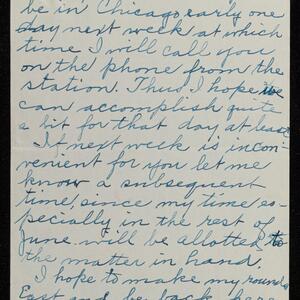 be in Chicago early one
day next week at which
time I will call you
on the phone from the
station. Thus I hope we
can accomplish quite
a bit for that day at least
If next week is incon-
venient for you let me
know a subsequent
time, since my time es-
pecially in the rest of
June will be allotted to
the matter in hand.
I hope to make my rounds
East and be back here